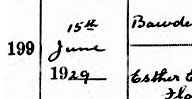 15th
Bawde
199
June
1929
Esther E
Flo